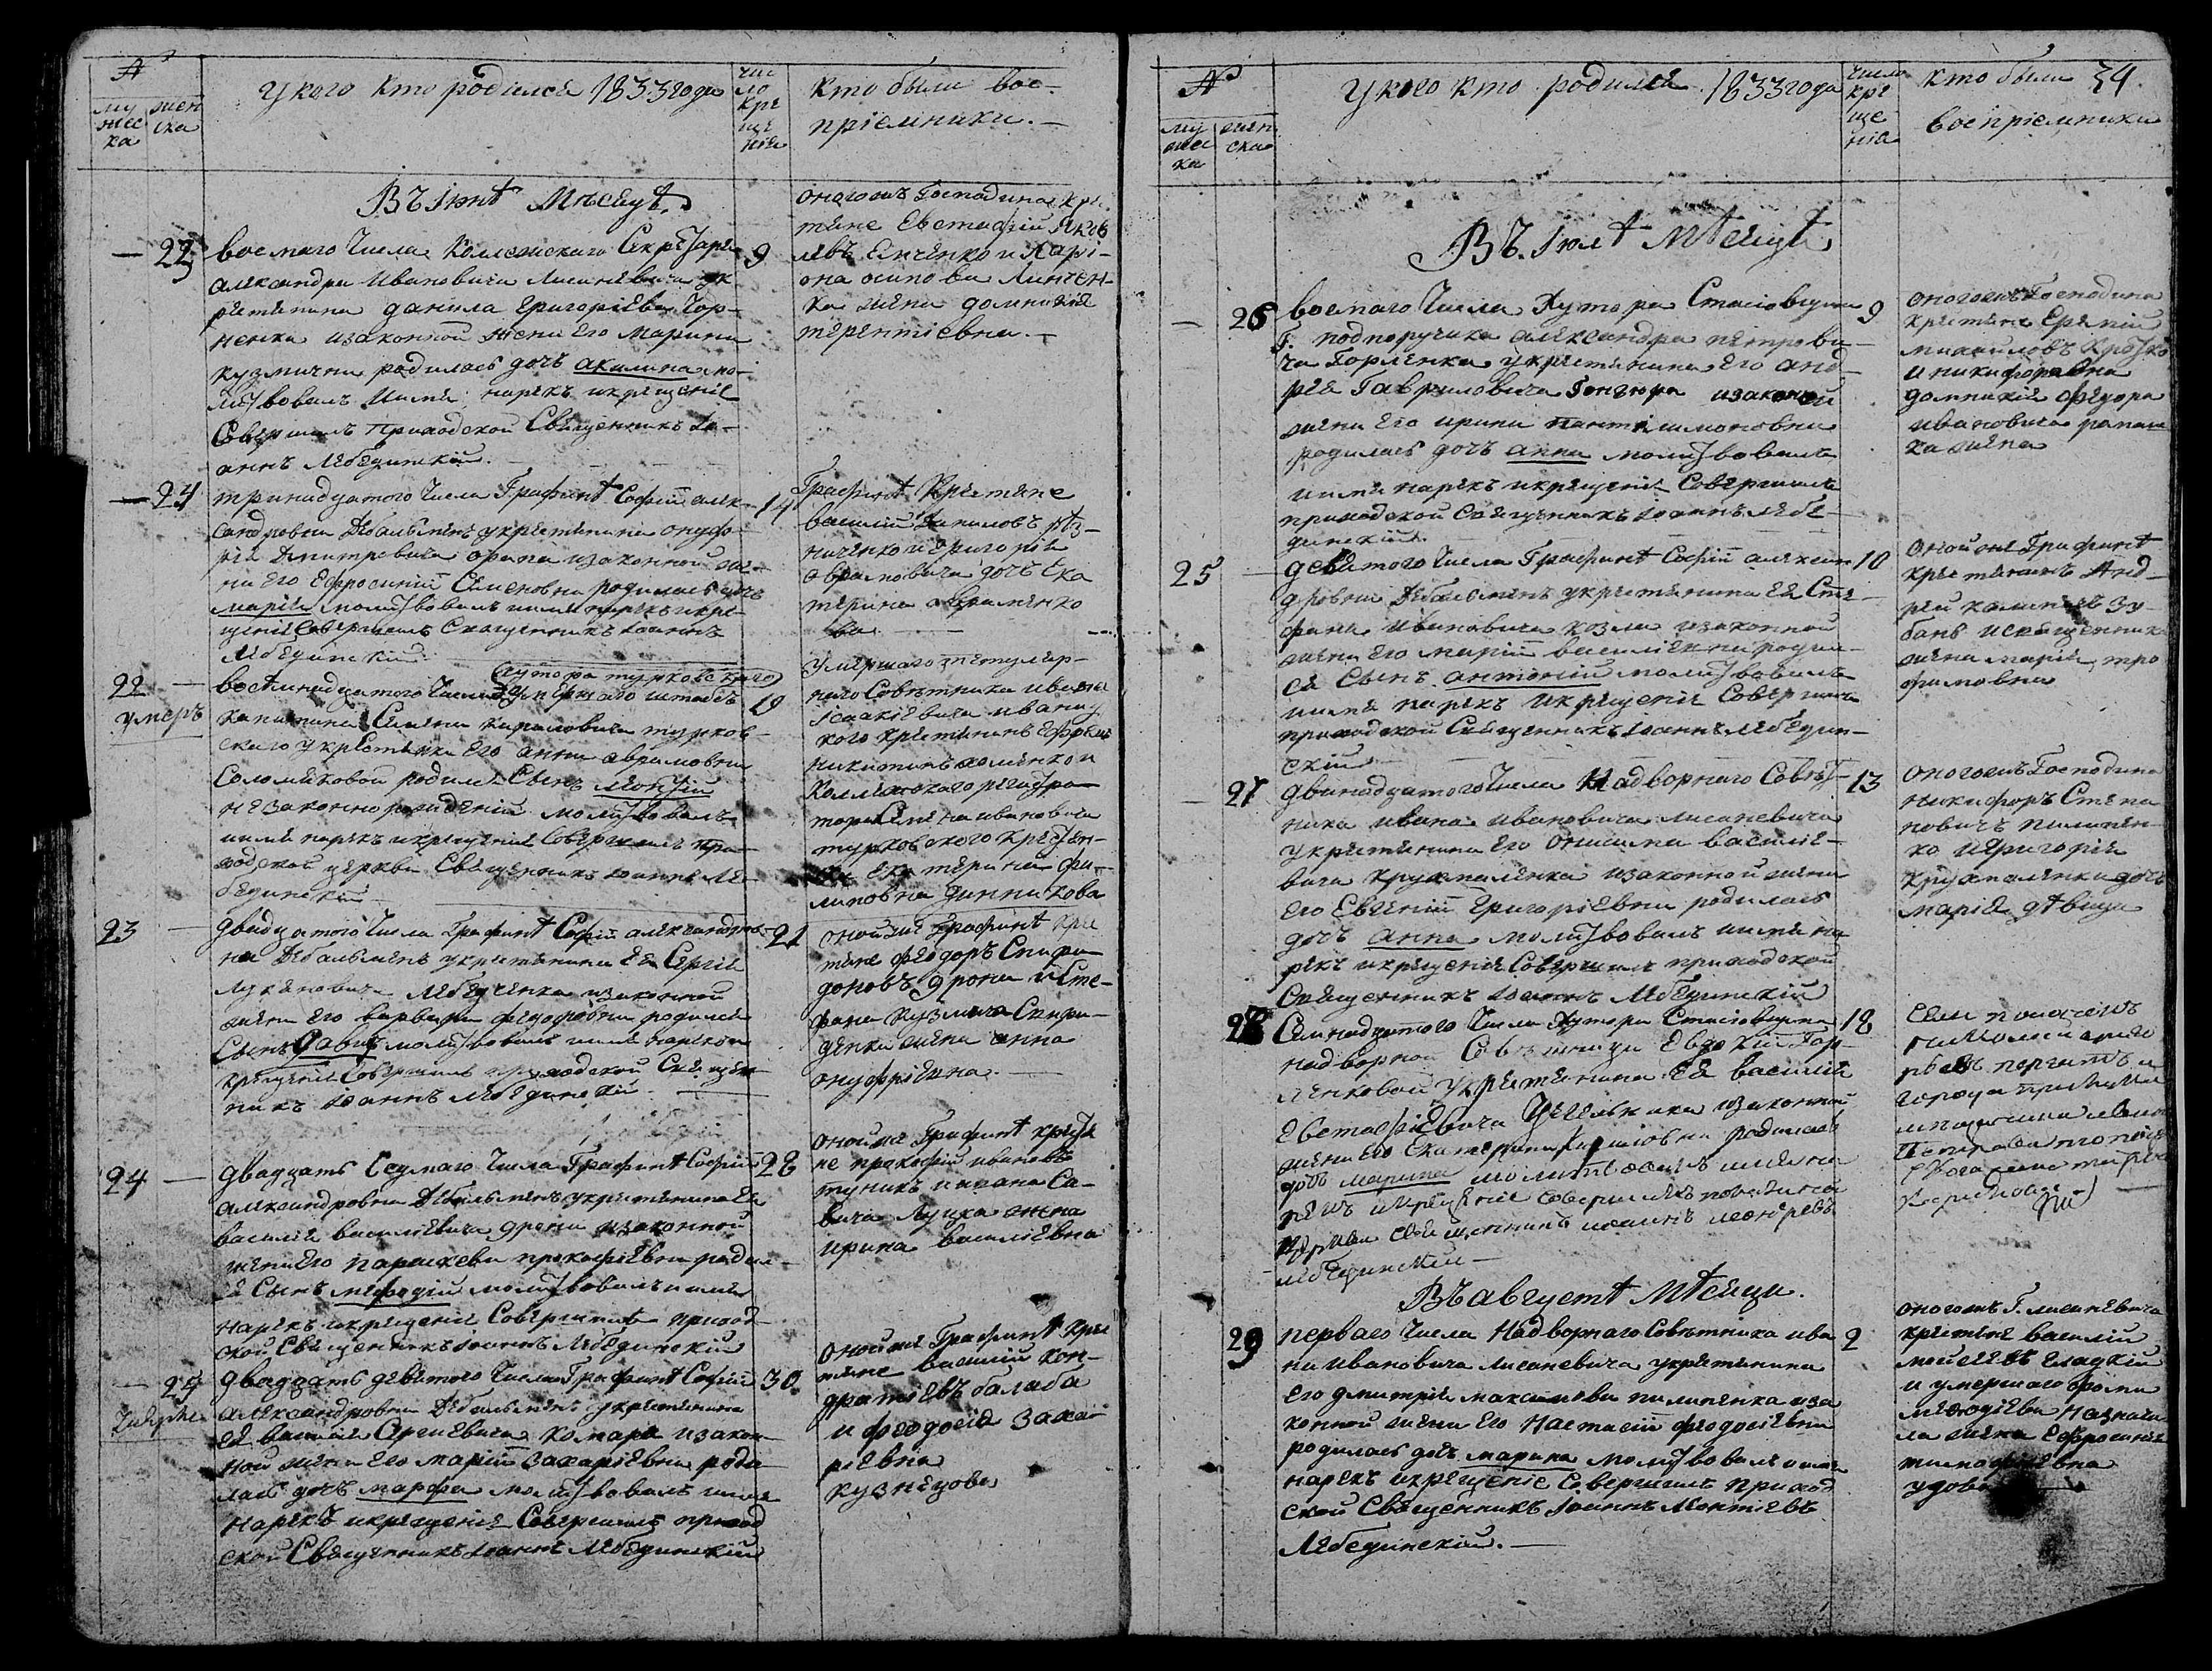 №
му
жес
ка
жен
ска
У кого кто родился 1833 года
чис
ло
кре
ще
нія
кто были вос-
пріемники.—
Въ Іюнѣ Мѣсяцѣ.
— 23
восмаго числа Коллежскаго Секретаря
александра Ивановича Лисаневича у кр
ретянина данила Григоріева Гор-
ненка изаконной жени Его Марини
кузмични родилась дочь акилина мо-
литвовалъ имя нарекъ икрещеніе
Совершилъ приходской Священникъ Іо-
аннъ Лебединскій.
9
оногожъ Господина кре-
тяне Евстафій Яков
левъ Емченко и Ларі-
она осипова
ка жена домникія
терентіевна.—
— 24
тринадцатого числа Графинѣ Софіи алек-
сандровни Дебальменъ укретянина онуф-
рія дмитровича изаконной же-
ни его Ефросиніи Семеновни родилась дочь
марія молитвовалъ имя нарекъ икре-
щеніе Совершилъ Священникъ Іоаннъ
Лебединскій
14
Графинѣ Кретяне
василій Даниловъ
ниченко и Григорія
аврамовича дочь Ека
терина авраменко
ва —
22 —
умеръ
хутора турковскаго
восемнадцатого числа умершаго штабсъ
капитана Семена кариловича турков-
скаго укрестянки его анни аврамовни
Соломяховой родился Сынъ леонтій
незаконнорожденій молитвовалъ
имя нарекъ икрещеніе Совершилъ при-
ходской церкви Священникъ Іоаннъ Ле-
бединскій
19
умершаго титуляр-
наго Совѣтника ивана
Ісаакіевича иваниц
кого кретянинъ Ефремъ
никитинъ хоменко и
Коллежского регистра
тора Семена ивановича
турковского кретян-
ка екатерина фи-
липовна
23 —
двадцатого числа Графинѣ Софіи александров-
ни Дебальменъ укретянина Ея Сергія
лукяновича Лебеденка изаконной
жени его варвари федоровни родился
Сынъ Давидъ молитвовалъ имя нарекъ и
крещеніе Совершилъ приходской Священ-
никъ Іоаннъ Лебединскій.
21
оной же Графинѣ кре
тяне феодоръ Спири
доновъ дрона и Сте-
фана кузмича Спири-
денка жена анна
онуфріевна.—
24 —
двадцать Седмаго числа Графинѣ Софіи
александровни Дебальменъ укретянина Ея
василія василіевича дрони изаконной
жени Его параскеви прокофіевни родил-
я Сынъ мефодій молитвовалъ имя
нарекъ икрещеніе Совершилъ приход-
ской Священникъ Іоаннъ Лебединскій
28
оной же Графинѣ кретя
не прокофій ивановъ
тупикъ и ивана Са-
вича Луцка жена
ирина василіевна
— 25
двадцать девятого числа Графинѣ Софіи
александровни Дебальменъ укретянина
ея василія Сергиевича комара изакон-
ной жени его маріи Захаріевни роди
лась дочь марфа молитвовалъ имя
нарекъ икрещеніе Совершилъ приход
ской Священникъ Іоаннъ Лебединскій
30
оной же Графинѣ Кре
тяне василій кон-
дратіевъ балаба
и феодосія Заха-
ріевна
кузнецова
№
му
жес
ка
жен
ска
У кого кто родился 1833 года
число
кре
ще
нія
кто были
воспріемники
34.
Въ Іюлѣ Мѣсяцѣ
— 26
восмаго числа Хутора Стасовщини
Г. подпоручика александра петрови-
ча Горленка укретянина его анд-
рея Гавриловича Гончара изаконой
жени Его ирини пантелимоновни
родилась дочь анна молитвовалъ
имя нарекъ икрещеніе Совершилъ
приходской Священникъ Іоаннъ Лебе-
динскій.
9
оногожъ Господина
кретяне Еремій
михаиловъ
и никифоровна
домникія феодора
ивановича
ка жена
25 —
девятого числа Графинѣ Софіи алексан
дровни Дебальменъ укретянина Ея Сте-
фана ивановича козла изаконной
жени его маріи василіевни родил-
ся Сынъ антоній молитвовалъ
имя нарекъ икрещеніе Совершилъ
приходской Священникъ Іоаннъ Лебедин-
скій
10
оной же Графинѣ
кретянинъ Анд-
рей калинъ Зу-
бань и священника
жена марія тро
фимовна
— 27
дванадцатого числа Надворнаго Совѣт-
ника ивана ивановича лисаневича
укретянина Его онисима василіе-
вича крухмаленка изаконной жени
его Евгеніи Григоріевни родилась
дочь анна молитвовалъ имя на
рекъ икрещеніе Совершилъ приходской
Священникъ Іоаннъ Лебединскій
13
оногожъ Господина
никифоръ Степа
новичъ пилипен-
ко и Григорія
крухмаленка дочь
марія дѣвица
28
Семнадцатого числа Хутора Стасовщини
надворной Совѣтници Евдокіи Гор-
ленковой укретянина Ея василія
Евстафіевича Цегельника изаконной
жени его Екатерини родилась
дочь марина молитвовалъ имя на
рекъ икрещеніе совершилъ
церкви священникъ иоаннъ леонтіевъ
лебединскій —
18
города прилуки
Въ августѣ Мѣсяцѣ.
29
перваго числа Надворнаго Совѣтника ива
на ивановича лисаневича укретянина
его дмитрія максимова пилипенка иза
конной жени его Настасіи феодосіевни
родилась дочь марина молитвовалъ имя
нарекъ икрещеніе Совершилъ приход
ской Священникъ Іоаннъ Леонтіевъ
Лебединскій.—
2
оногожъ Г. лисаневича
кретяне василій
мойсеевъ Гладкій
и умершаго фоми
мефодіева
ла жена Ефросинія
тимофіевна
удова